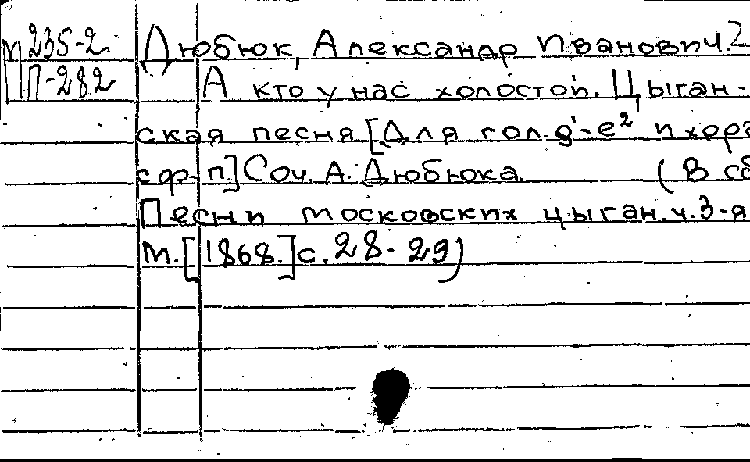 М 235-2
П-282
Дюбюк, Александр Иванович.
А кто у нас холостой. Цыган-
ская песня [Для гол. g'-e² и хора
с фп.] Соч. А. Дюбюка. (В сб
Песни московских цыган. ч. 3-я
М. [1868.] с. 28-29)